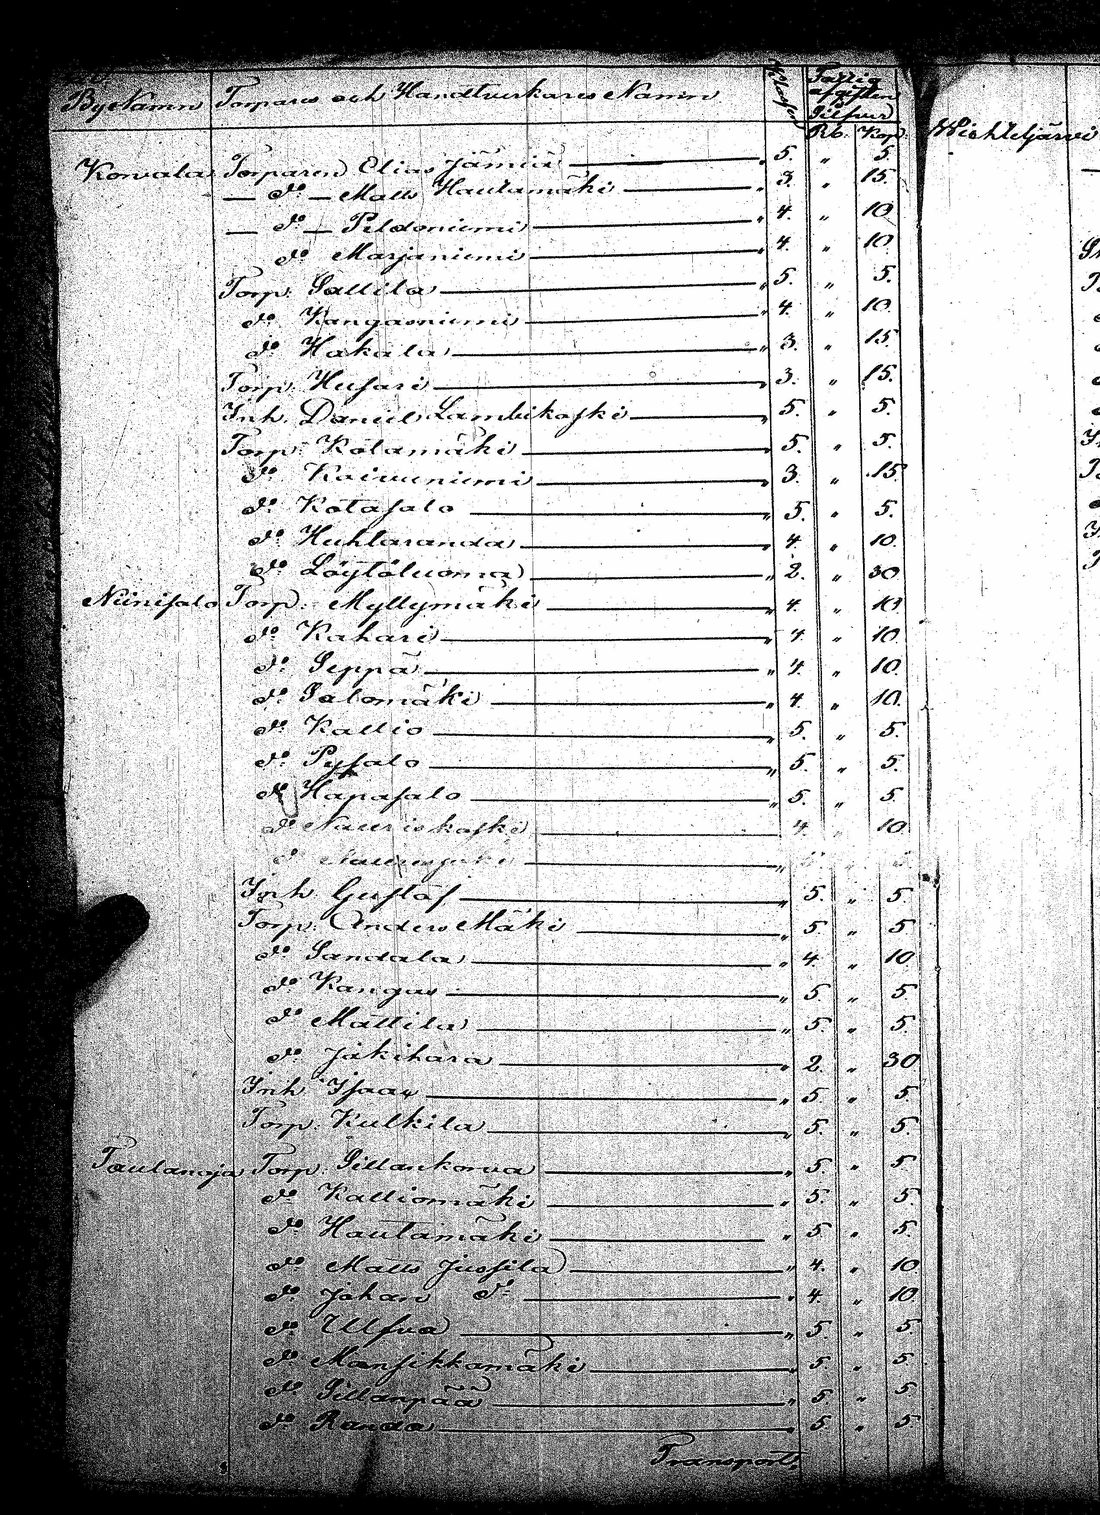 By Namn Torpares och Handtverkares Namn Klassen Fattig afgiften Silfver
Rb. Kop. Wichteljärvi
Korvala Torparen Elias Jämiä 5. " 5.
— do — Matts Hautamäki 3. " 15.
— do — Peldoniemi 4. " 10
do Marjaniemi 4. " 10.
Torp: Sallila 5. " 5.
do Kangasniemi 4. " 10.
do Hakala 3. " 15.
Torp: Husari 3. " 15.
Inh. Daniel Lambikoski 5. " 5.
Torp: Kotamäki 5. " 5.
do Koivuniemi 3. " 15.
do Kotasalo 5. " 5.
do Huhtaranda 4. " 10.
do Löytöluoma 2. " 30
Niinisalo Torp: Myllymäki 4. " 10
do Kahari 4. " 10.
do Seppä 4. " 10.
do Salomäki 4. " 10.
do Kallio 5. " 5.
do Pysalo 5. " 5.
do Hapasalo 5. " 5.
do Nauriskoski 4. " 10.
do
Inh. Gustaf 5. " 5
Torp: Anders Mäki 5 " 5
do Sandala 4. " 10
do Kangas 5 " 5.
do Mattila 5. " 5.
do Jäkihara 2. " 30
Inh Isaac 5. " 5.
Torp: Kulkila 5. " 5.
Taulanoja Torp: Sillankorva 5. " 5
do Kalliomäki 5. " 5.
do Hautamäki 5 " 5.
do Matts Jussila 4. " 10
do Johan do 4. " 10.
do Ulfva 5. " 5.
do Mansikkamäki 5 " 5.
do Sillanpää 5. " 5
do Randa 5. " 5
Transport: